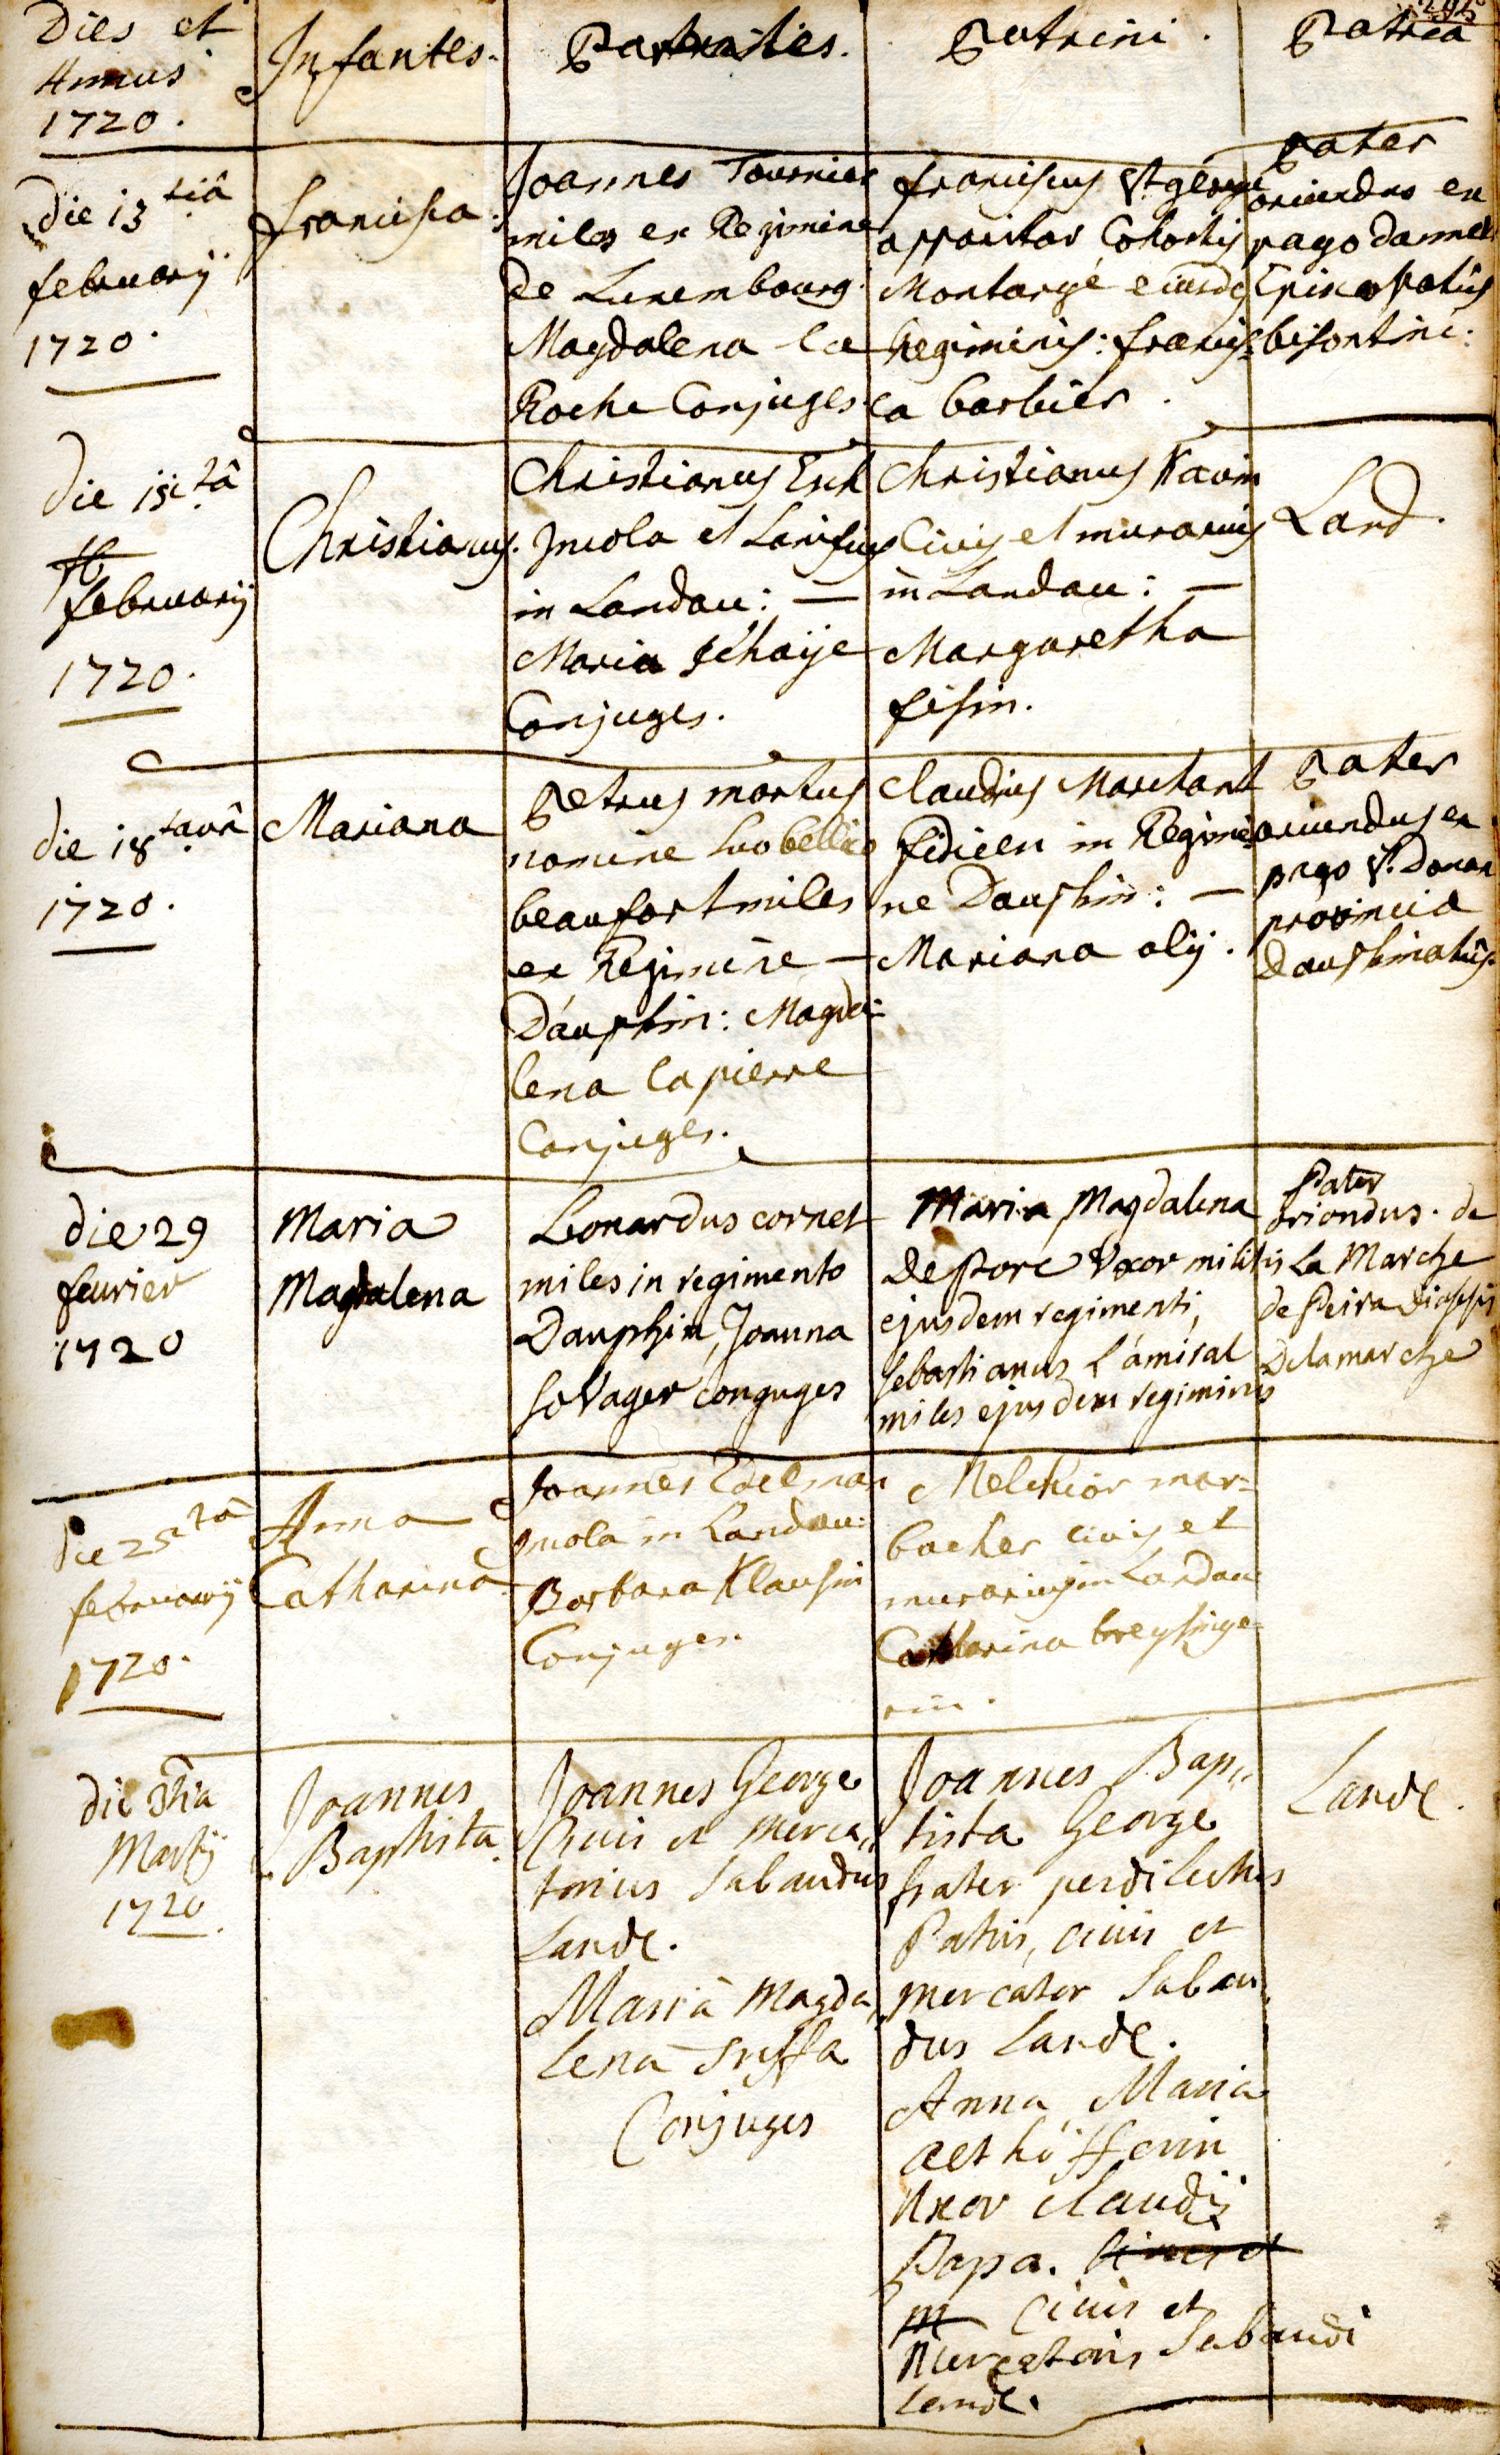 Dies et
Annus
1720.
Infantes.
Parentes.
Patrini.
Patria
die 13 tiâ
februarij
1720.
francisca.
Joannes Tournier
miles ex Regimine
de Luxembourg.
Magdalena la
Roche Conjuges.
franciscus St george
apparitor Cohortis
Montargé eiusdē
Regiminis: francis=
ca barbier.
pater
oriundus ex
pago dannel
Episcopatûs
bisontini:
die 15 tâ
februarij
1720.
Christianus.
Christianus Esch
Incola et Lanifex
in Landau: —
Maria
Conjuges.
Christianus
Civis et murarius
in Landau: —
Margaretha
fisin.
Land.
die 18 tauâ
1720.
Mariana
Petrus mortus
nomine suo bellico
beaufort miles
ex Regimine —
Dauphin: Magda=
lena lapierre
Conjuges.
Claudius Marchant
fidicen in Regimi=
ne Dauphin: —
Mariana olij.
pater
oriundus ex
pago St. Donan
provincia
Dauphinatûs.
die 29
feurier
1720
Maria
Magdalena
Leonardus cornet
miles in regimento
Dauphin, Joanna
soVager conguges
Maria Magdalena
Deporc Vxor militis
ejusdem regimenti,
sebastianus L'amiral
miles ejusdem regiminis
Pater
oriondus. de
La Marche
de Peira
Delamarche
die 25 tâ
februarij
1720.
Anna
Catharina
Joannes Edelman
Incola in Landau:
Barbara Klausin
Conjuges.
Melchior mar=
bacher civis et
murarius in Landau
Catharina breysinge=
rin.
die 3tia
Martij
1720.
Joannes
Baptista.
Joannes George
Civis et merca,,
torius Sabaudus
LandE.
Maria Magda,,
lena
Conjuges
Joannes Bap,,
tista George
frater perdilectus
Patris, civis et
mercator Sabau,,
dus LandE.
Anna Maria
aethöfferin
Uxor Claudij
Papa. Civis et
m Civis et
Mercatoris Sabaudi
LandE.
LandE.